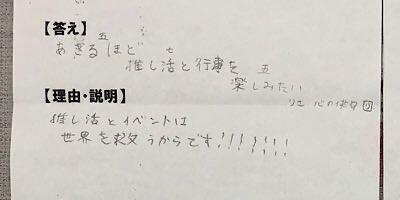 【答え】
五
あきるほど
七
推し活と行事を
五
楽しみたい
【理由・説明】
推し活とイベントは
世界を救うからです!!!!!!!